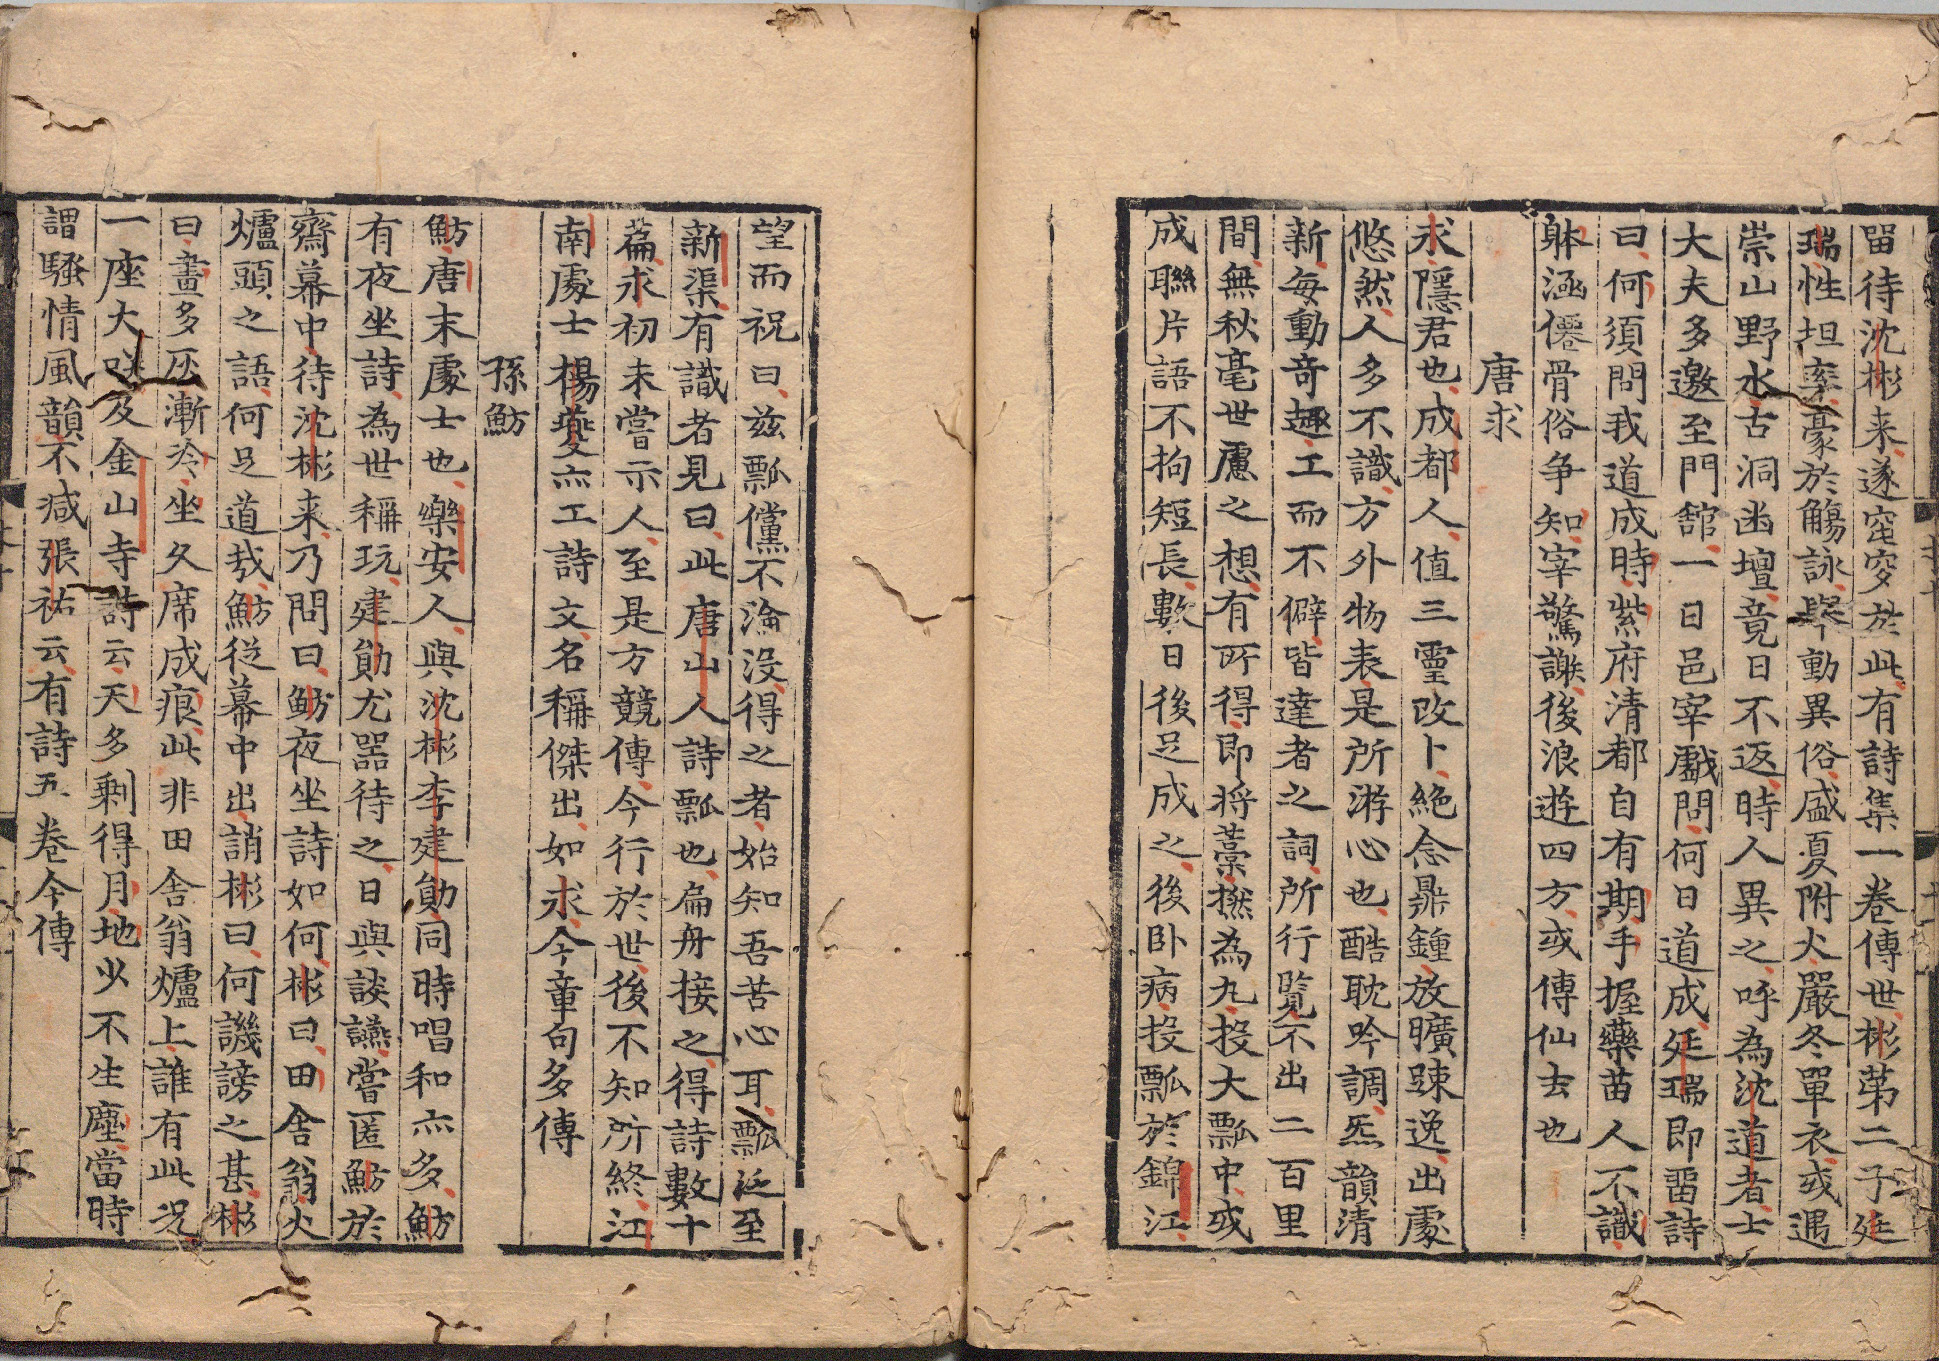 留待沈彬来遂窆穸於此有詩集一卷傳世彬第二子廷
瑞性坦率豪於觴詠舉動異俗盛夏附火嚴冬單衣或遇
崇山野水古洞幽壇竟日不返時人異之呼為沈道者士
大夫多邀至門舘一日邑宰戲問何日道成廷瑞即留詩
曰何須問我道成時紫府清都自有期手握藥苗人不識
躰涵僊骨俗争知宰驚謝後浪遊四方或傳仙去也
唐求
求隱君也成都人值三靈改卜絶念鼎鍾放曠踈逸出處
悠然人多不識方外物表是所游心也酷耽吟調炁韻清
新每動奇趣工而不僻皆達者之詞所行覽不出二百里
間無秋毫世慮之想有所得即将藁撚為丸投大瓢中或
成聯片語不拘短長數日後足成之後卧病投瓢於錦江
望而祝曰兹瓢儻不淪没得之者始知吾苦心耳瓢泛至
新渠有識者見曰此唐山人詩瓢也扁舟接之得詩數十
篇求初未嘗示人至是方競傳今行於世後不知所終江
南處士楊夔亦工詩文名稱傑出如求今章句多傳
孫魴
魴唐末處士也樂安人與沈彬李建勛同時唱和亦多魴
有夜坐詩為世稱玩建勛尤噐待之日與談讌嘗匿魴於
齋幕中待沈彬来乃問曰魴夜坐詩如何彬曰田舎翁火
爐頭之語何足道㢤魴從幕中出誚彬曰何譏謗之甚彬
曰畫多灰漸冷坐久席成痕此非田舎翁爐上誰有此况
一座大咲及金山寺詩云天多剩得月地少不生塵當時
謂騷情風韻不减張祐云有詩五卷今傳